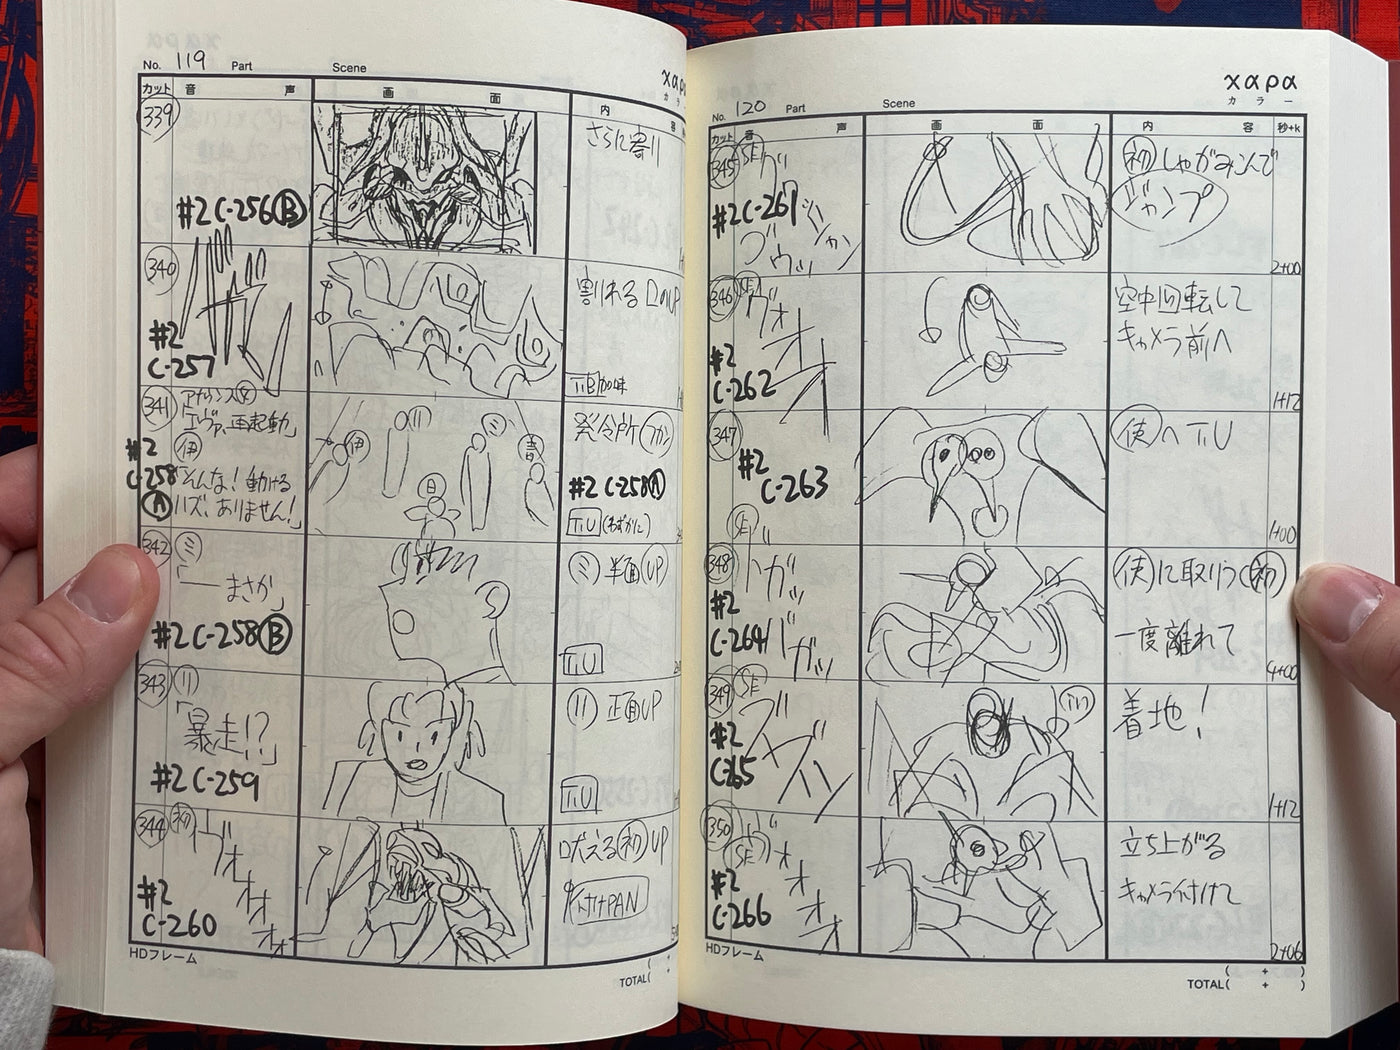 No. 119 Part Scene
χαρα
カラ
カット 音 声 画 面 内
339
さらに寄り
#2 C-256 B
340
割れる口のUP
#2
C-257
T.B加味
341
アナウンス
「エヴァ、再起動」
伊
「そんな!動ける
ハズ、ありません!」
#2
C-258
A
伊 リ ミ 青 日
発令所 フカン
#2 C-258 A
T.U(わずかに)
342
ミ
「――まさか」
#2 C-258 B
ミ 半面UP
T.U
343
リ
「暴走!?」
#2 C-259
リ 正面UP
T.U
344
初
ヴォオオォ
#2
C-260
吠える初UP
付けPAN
HDフレーム
TOTAL( +
No. 120 Part Scene
χαρα
カラー
カット 音 声 画 面 内 容 秒+k
345
SE
#2 C-261
初 しゃがみこんで
ジャンプ
2+00
346
SE
ヴォオオ
#2
C-262
空中回転して
キャメラ前へ
1+12
347
#2
C-263
使へT.U
1+00
348
SE
ガッ
ガッ
#2
C-264
使に取りつく初
一度離れて
4+00
349
SE
#2
C-265
着地!
1+12
350
SE
ヴォオオォ
#2
C-266
立ち上がる
キャメラ付けて
2+06
HDフレーム
TOTAL( + )